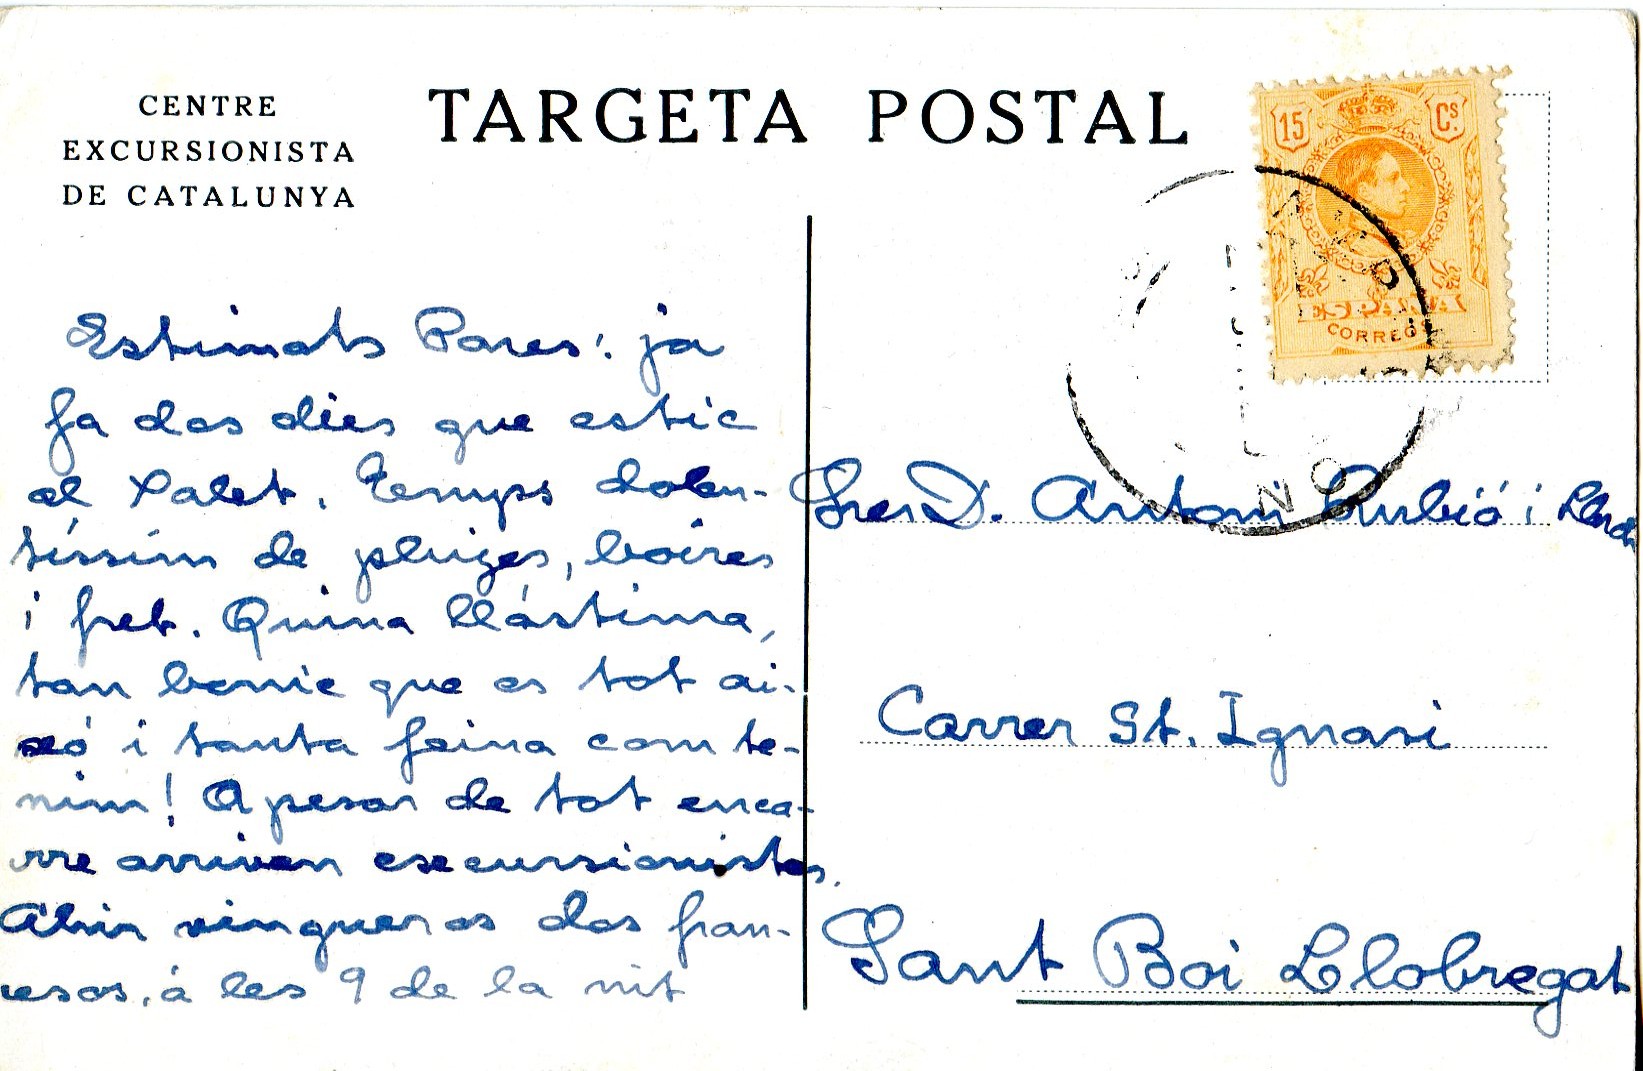 CENTRE
EXCURSIONISTA
DE CATALUNYA
TARGETA POSTAL
15 Cs.
ESPAÑA
CORREOS
Estimats Pares: ja
fa dos dies que estic
al Xalet. Temps dolen-
tíssim de pluges, boires
i fret. Quina llástima,
tan bonic que es tot ai-
xó i tanta feina com te-
nim! A pesar de tot enca-
rre arriven excursionistes.
Ahir vingueros dos fran-
cesos, á les 9 de la nit
Sres D. Antoni Rubió i
Carrer St. Ignasi
Sant Boi Llobregat